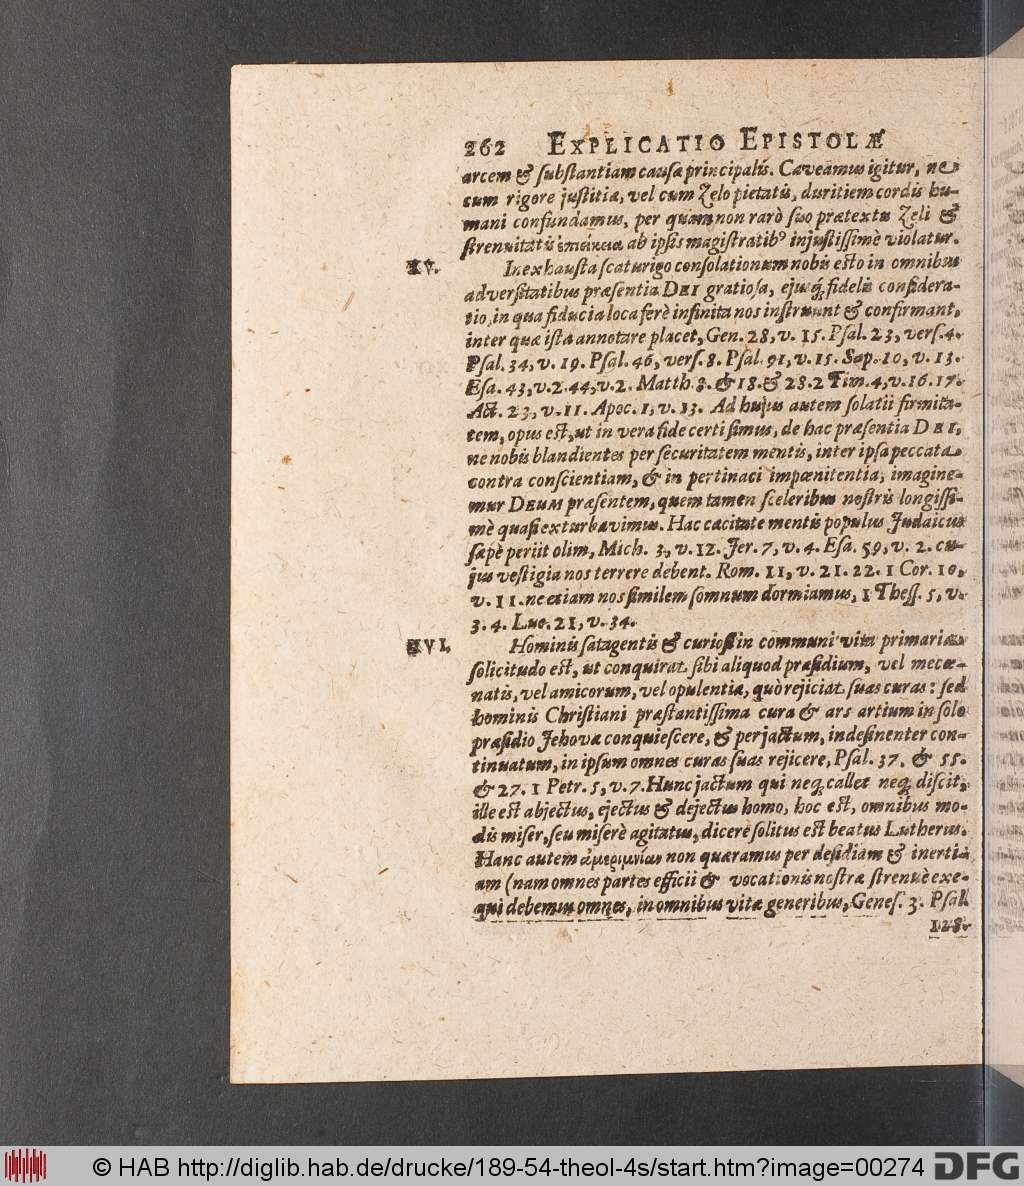 262 EXPLICATIO EPISTOLÆ
arcem & substantiam causæ principalis. Caveamus igitur, ne
cum rigore justitiæ, vel cum Zelo pietatis, duritiem cordis hu-
mani confundamus, per quam non rarò suo prætextu Zeli &
strenuitatis ἐπιείκεια ab ipsis magistratibꝰ injustissimè violatur.
XV. Inexhausta scaturigo consolationum nobis esto in omnibus
adversitatibus præsentia DEI gratiosa, ejusq́; fidelis considera-
tio, in qua fiducia loca ferè infinita nos instruunt & confirmant,
inter quæ ista annotare placet, Gen. 28, v. 15. Psal. 23, vers. 4.
Psal. 34, v. 19. Psal. 46, vers. 8. Psal. 91, v. 15. Sap. 10, v. 13.
Esa. 43, v. 2. 44, v. 2. Matth. 8. & 18. & 28. 2 Tim. 4, v. 16. 17.
Act. 23, v. 11. Apoc. 1, v. 13. Ad hujus autem solatii firmita-
tem, opus est, ut in vera fide certi simus, de hac præsentia DEI,
ne nobis blandientes per securitatem mentis, inter ipsa peccata
contra conscientiam, & in pertinaci impœnitentia, imagine-
mur DEUM præsentem, quem tamen sceleribus nostris longissi-
mè quasi exturbavimus. Hac cæcitate mentis populus Judaicus
sæpè periit olim, Mich. 3, v. 12. Jer. 7, v. 4. Esa. 59, v. 2. cu-
jus vestigia nos terrere debent. Rom. 11, v. 21. 22. 1 Cor. 10,
v. 11. ne etiam nos similem somnum dormiamus, 1 Thess. 5, v.
3. 4. Luc. 21, v. 34.
XVI. Hominis satagentis & curiosi in communi vita primaria
solicitudo est, ut conquirat sibi aliquod præsidium, vel mecœ-
natis, vel amicorum, vel opulentiæ, quò rejiciat suas curas: sed
hominis Christiani præstantissima cura & ars artium in solo
præsidio Jehovæ conquiescere, & per jactum, indesinenter con-
tinuatum, in ipsum omnes curas suas rejicere, Psal. 37. & 55.
& 27. 1 Petr. 5, v. 7. Hunc jactum qui neq; callet neq; discit,
ille est abjectus, ejectus & dejectus homo, hoc est, omnibus mo-
dis miser, seu miserè agitatus, dicere solitus est beatus Lutherus.
Hanc autem ἀμεριμνίαν non quæramus per desidiam & inerti-
am (nam omnes partes officii & vocationis nostræ strenuè exe-
qui debemus omnes, in omnibus vitæ generibus, Genes. 3. Psal.
128.
© HAB http://diglib.hab.de/drucke/189-54-theol-4s/start.htm?image=00274 DFG